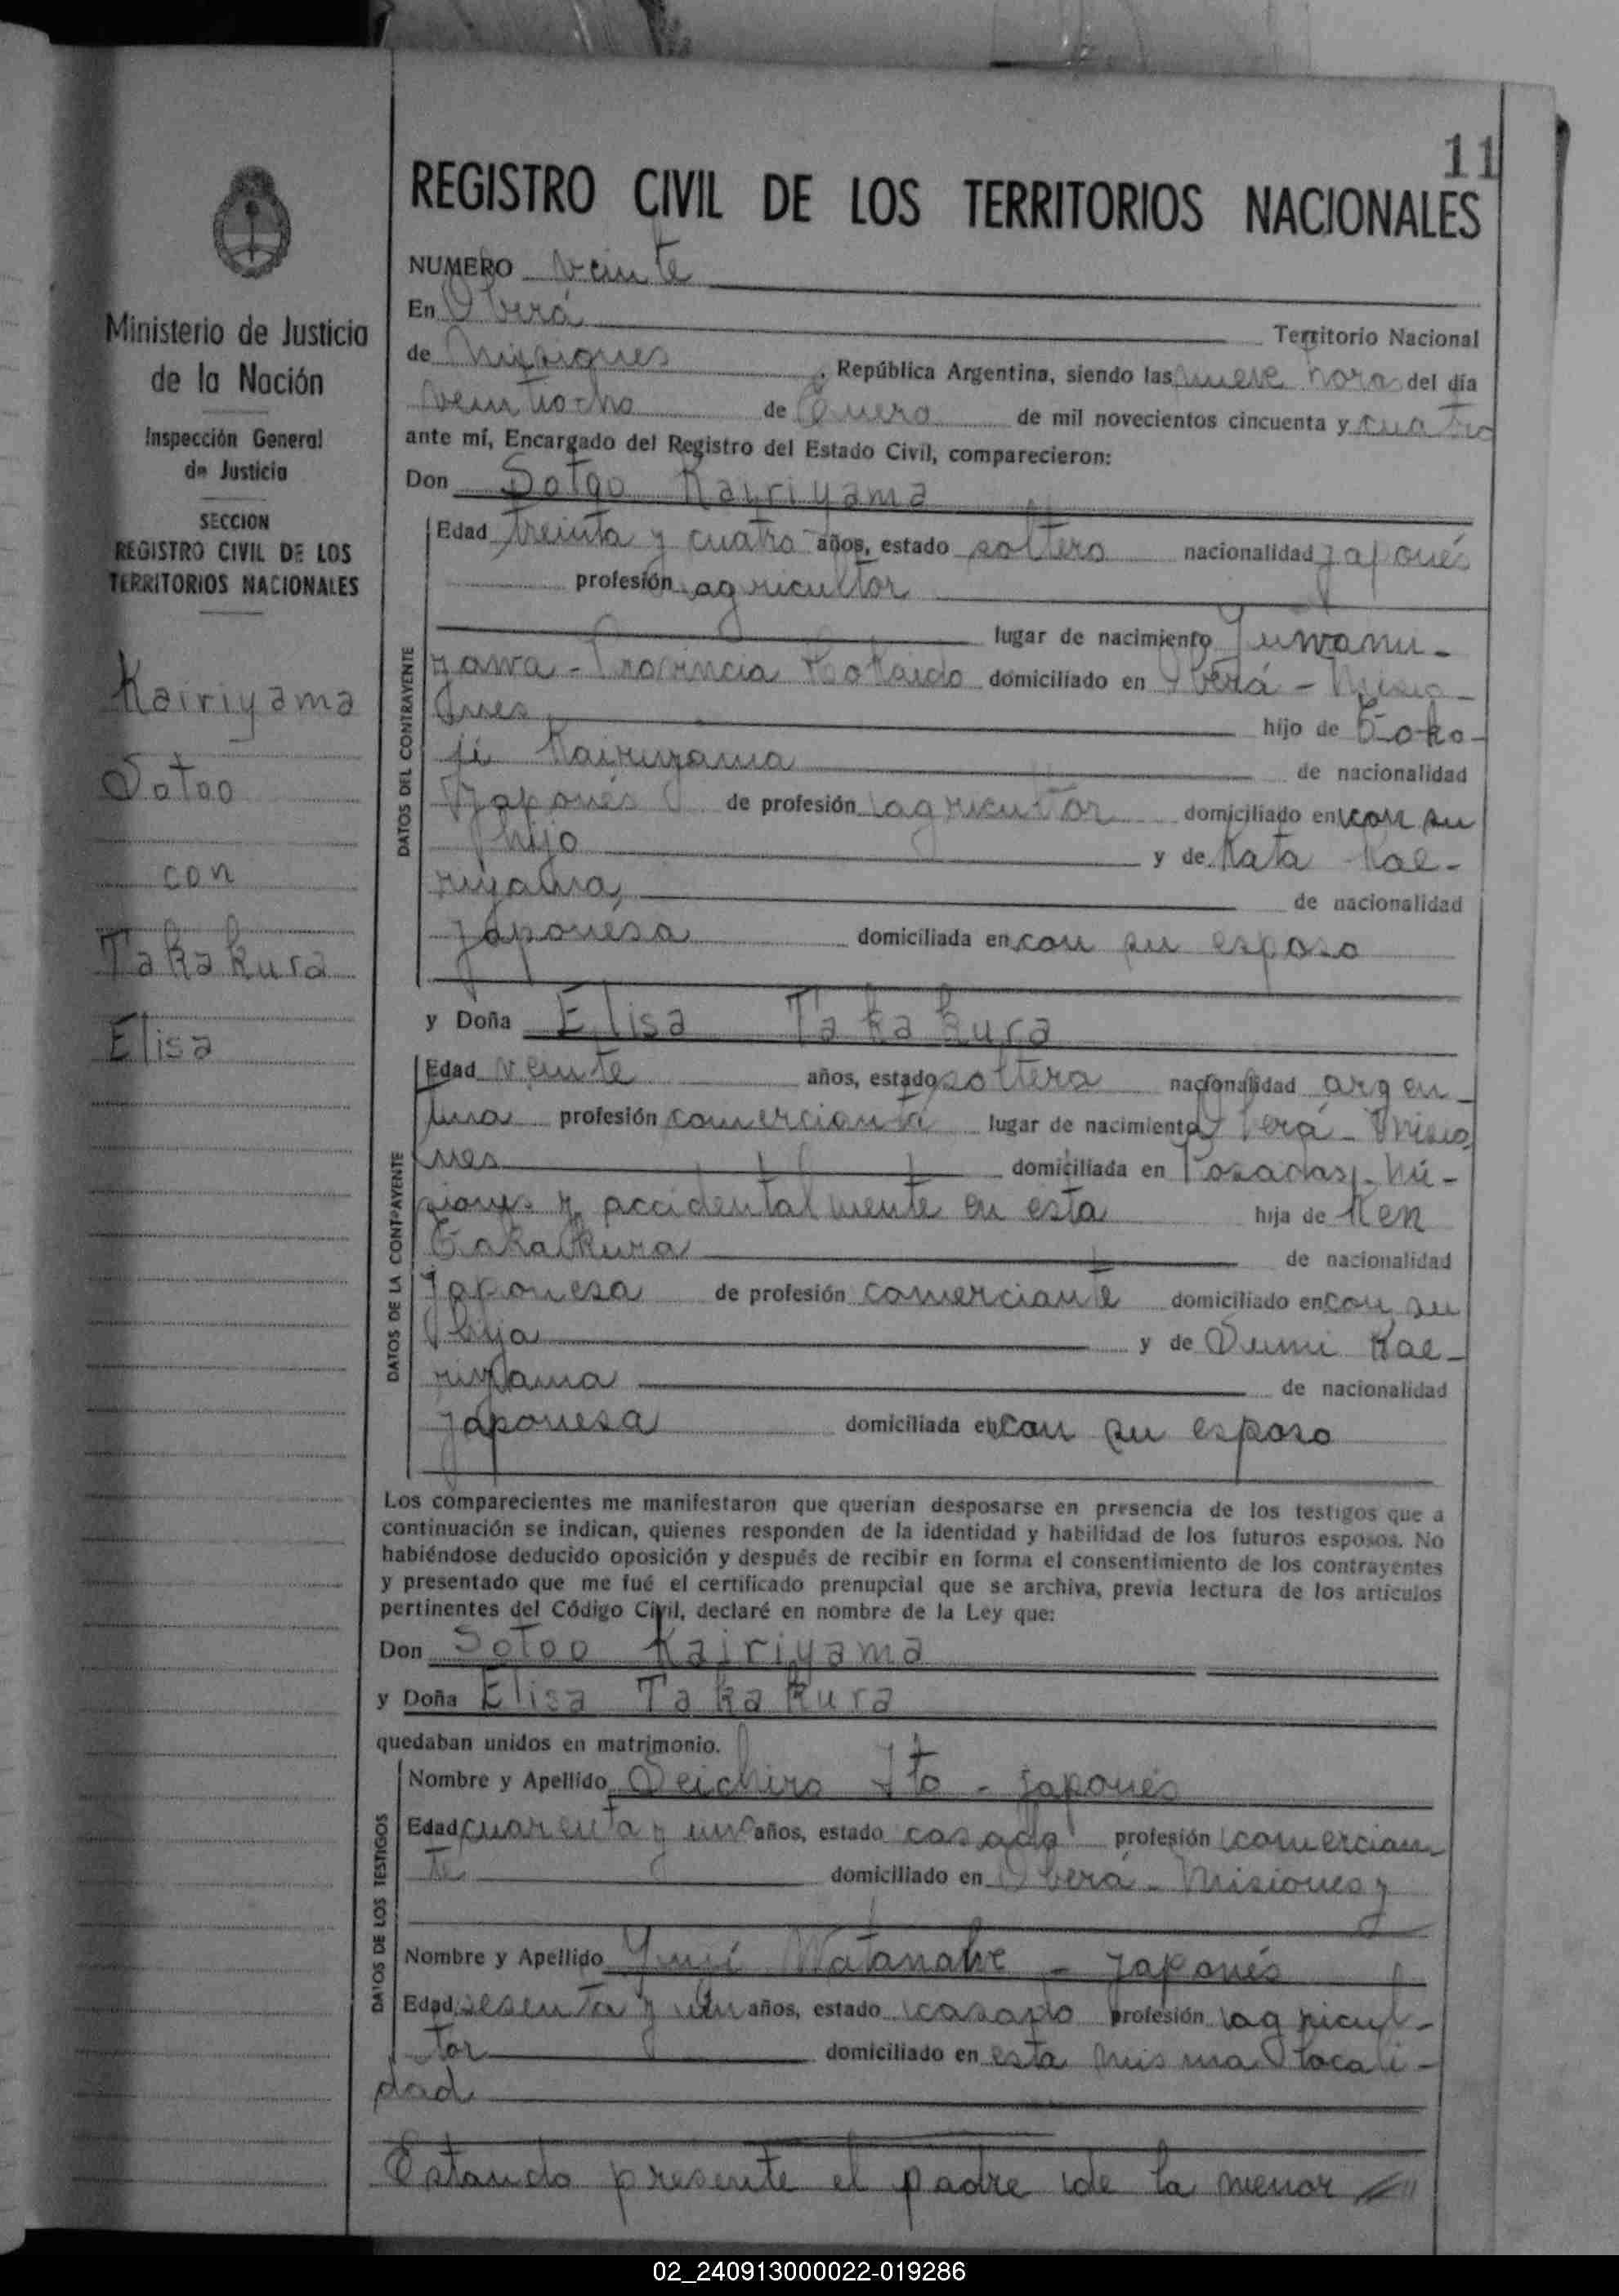 11
REGISTRO CIVIL DE LOS TERRITORIOS NACIONALES
Ministerio de Justicia
de la Nación
Inspección General
de Justicia
SECCION
REGISTRO CIVIL DE LOS
TERRITORIOS NACIONALES
Kairiyama
Sotoo
con
Takakura
Elisa
NUMERO veinte
En Oberá Territorio Nacional
de Misiones, República Argentina, siendo las nueve horas del día
veintiocho de Enero de mil novecientos cincuenta y cuatro
ante mí, Encargado del Registro del Estado Civil, comparecieron:
Don Sotoo Kairiyama
DATOS DEL CONTRAYENTE
Edad treinta y cuatro años, estado soltero nacionalidad japonés
profesión agricultor
lugar de nacimiento Yuwanu-
zawa - Provincia Hokaido domiciliado en Oberá - Misio-
nes hijo de Toko-
ji Kairiyama de nacionalidad
Japonés de profesión agricultor domiciliado en con su
hijo y de Kata Kae-
riyama, de nacionalidad
japonesa domiciliada en con su esposo
y Doña Elisa Takakura
DATOS DE LA CONTRAYENTE
Edad veinte años, estado soltera nacionalidad argen-
tina profesión comerciante lugar de nacimiento Oberá - Misio
nes domiciliada en Posadas, Mi-
siones y accidentalmente en esta hija de Ken
Takakura de nacionalidad
japonesa de profesión comerciante domiciliado en con su
hija y de Sumi Kae-
riyama de nacionalidad
japonesa domiciliada en con su esposo
Los comparecientes me manifestaron que querían desposarse en presencia de los testigos que a
continuación se indican, quienes responden de la identidad y habilidad de los futuros esposos. No
habiéndose deducido oposición y después de recibir en forma el consentimiento de los contrayentes
y presentado que me fué el certificado prenupcial que se archiva, previa lectura de los artículos
pertinentes del Código Civil, declaré en nombre de la Ley que:
Don Sotoo Kairiyama
y Doña Elisa Takakura
quedaban unidos en matrimonio.
DATOS DE LOS TESTIGOS
Nombre y Apellido Seichiro Ito - japonés
Edad cuarenta y un años, estado casado profesión comercian
te domiciliado en Oberá - Misiones y
Nombre y Apellido Watanabe - japonés
Edad sesenta y un años, estado casado profesión agricul-
tor domiciliado en esta misma locali-
dad
Estando presente el padre de la menor
02_240913000022-019286